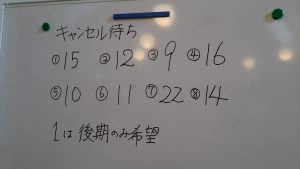 キャンセル待ち
①15 ②12 ③9 ④16
⑤10 ⑥11 ⑦22 ⑧14
1は後期のみ希望